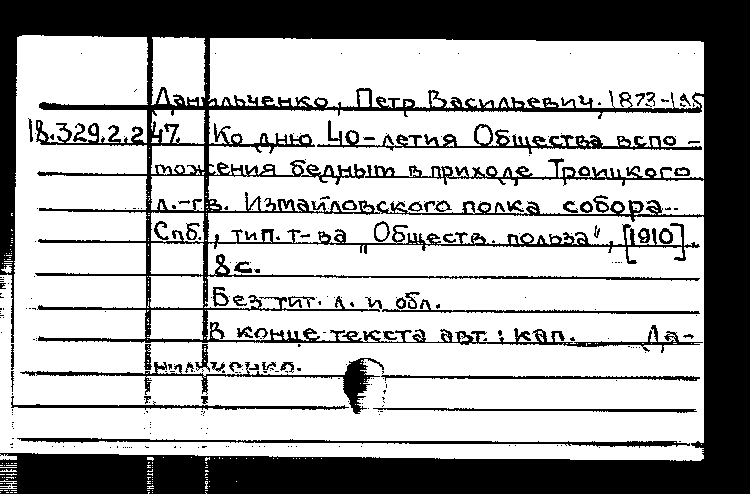 Данильченко, Петр Васильевич, 1873-195
18.329.2.247. Ко дню 40-летия Общества вспо-
можения бедным в приходе Троицкого
л.-гв. Измайловского полка собора.-
Спб., тип. т-ва "Обществ. польза", [1910].
8 с.
Без тит. л. и обл.
В конце текста авт.: кап. Да-
нильченко.